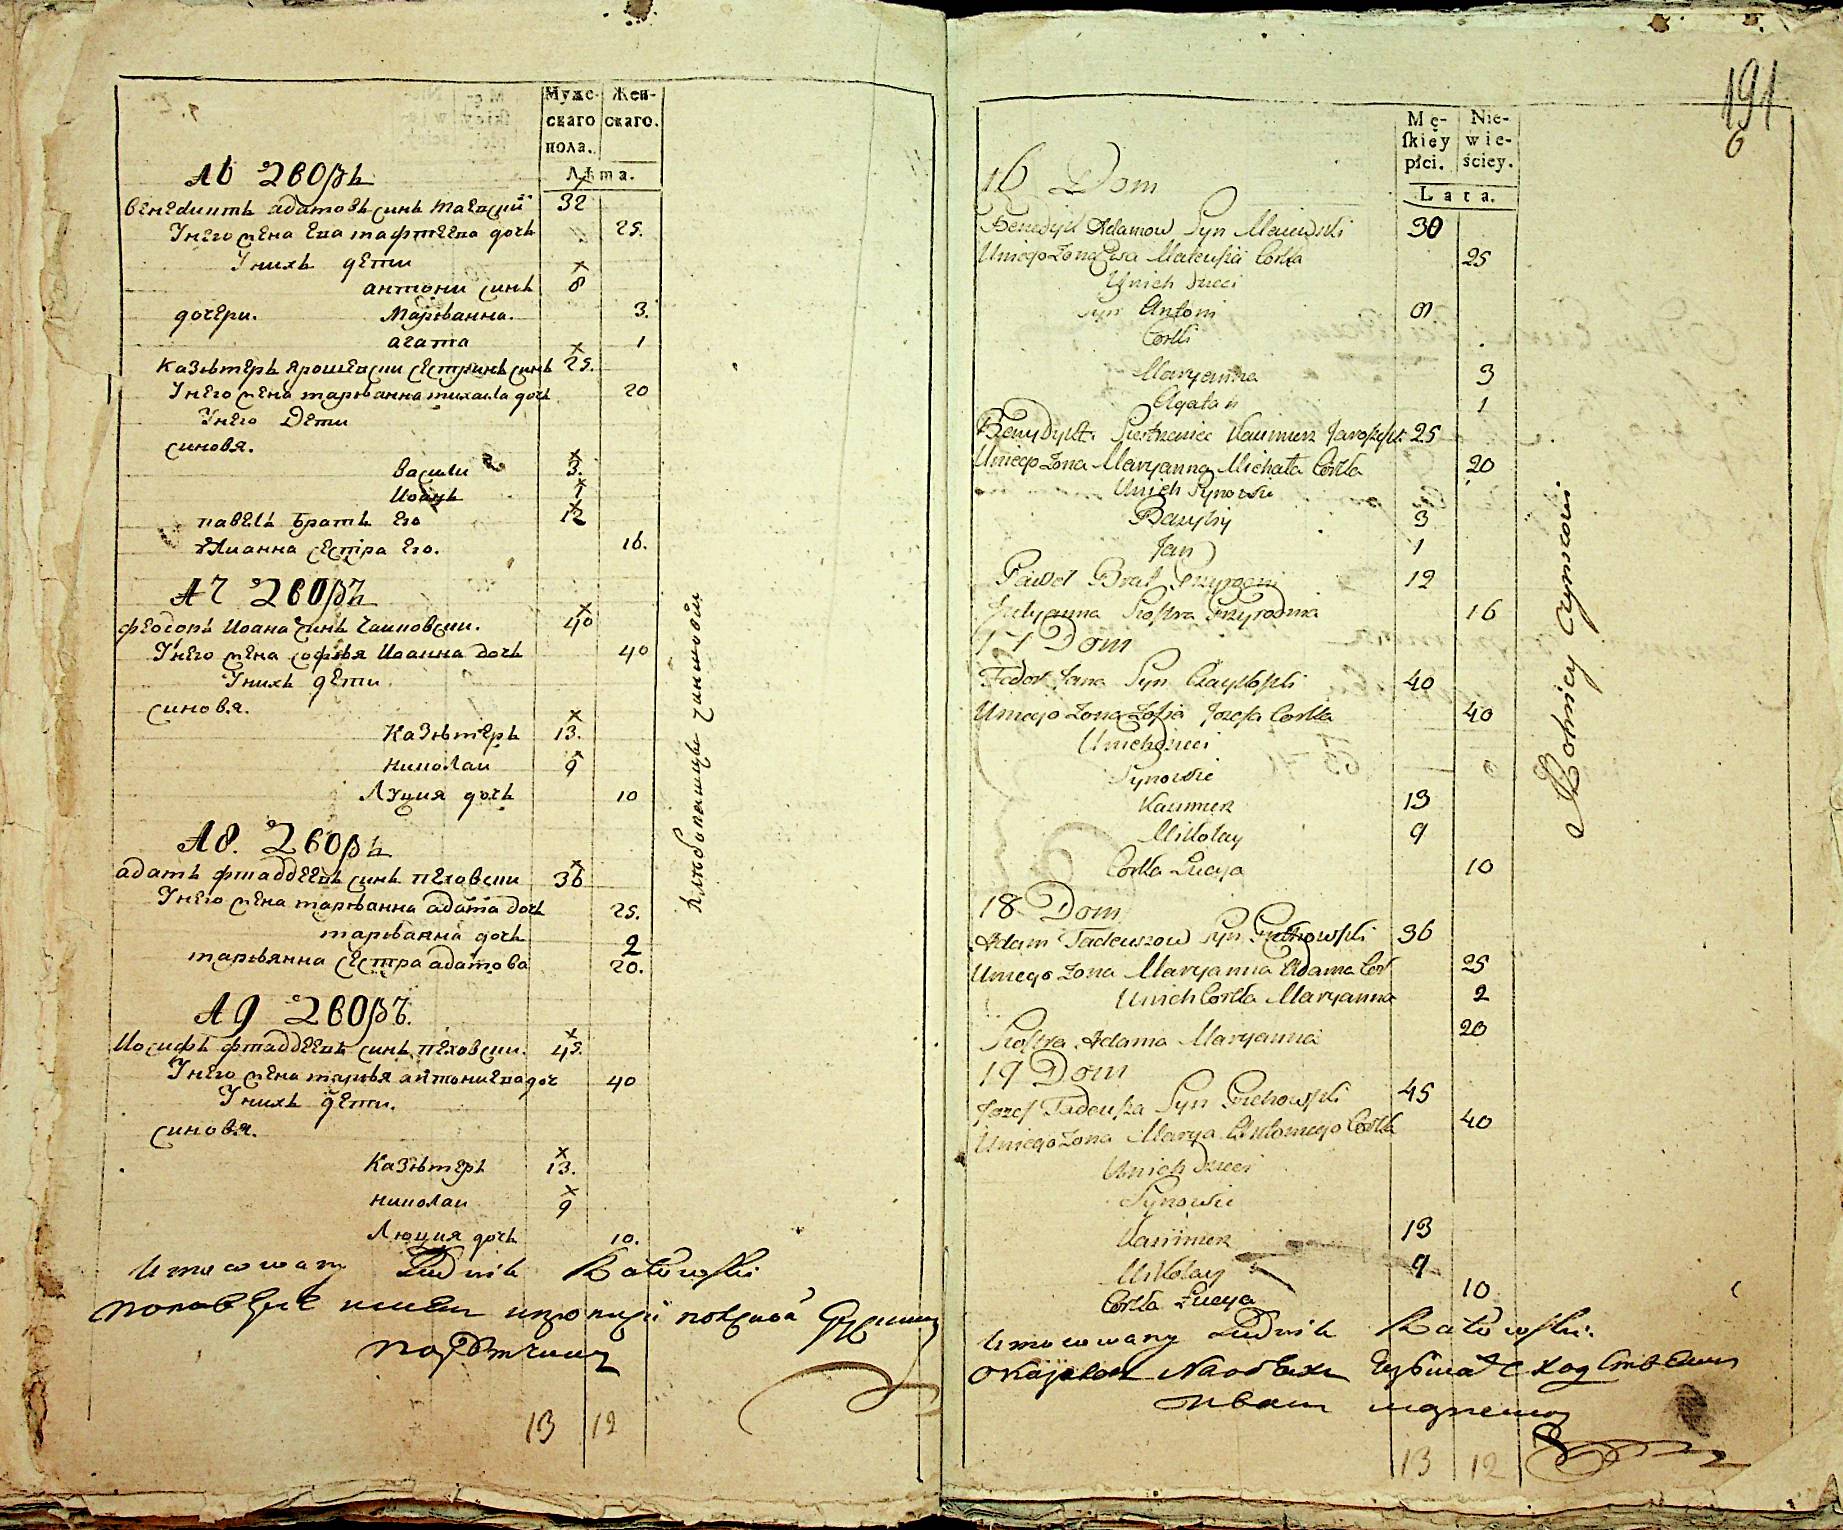 Муже-
скаго
пола.
Жен-
скаго.
Лѣта.
16 Дворъ
Бенедиктъ адамовъ синъ маевский 32
Унего жена Ева матеева дочь 25.
Унихъ дети
антони синъ 8
дочери. Марьванна. 3.
агата 1
Казѣмеръ Ярошевски сестринъ синъ 25.
Унего жена марьванна михаила дочь 20
Унего Дети
синовя.
Васили 3.
Иоанъ 1
павелъ братъ Его 12
Юлианна сестра Его. 16.
17 Дворъ
феодоръ Иоана синъ Чаиковски. 40
Унего жена софья Иоаина дочь 40
Унихъ дети
синовя.
Казѣмеръ 13.
николаи 9
Луция дочь 10
18. Дворъ
адамъ фтаддеевъ синъ пеховски 36
Унего жена марьванна адама дочь 25.
марьванна дочь 2
марьянна сестра адамова 20.
19 Дворъ.
Иосифъ фтаддеевъ синъ пеховски. 45.
Унего жена марья антониева доч 40
Унихъ дети.
синовя.
Казѣмеръ 13.
николаи 9
Люция дочь 10.
Umocowany Ludwik Batowski
13 12
Хлѣбопашци чиншови
191
6
Mę-
ſkiey
płci.
Nie-
wie-
ściey.
Lata.
16 Dom
Benedykt Adamow Syn Maiewski 30
Uniego Zona Ewa Mateusza Corka 25
Unich Dzieci
Syn Antoni 8
Corki
Maryanna 3
Agata 1
Benedykt. Siestrzeniec Kazimierz Jaroszesk 25
Uniego Zona Maryanna Michała Corka 20
Unich Synowie
Bazyly 3
Jan 1
Paweł Brat Przyrodni 12
Julyanna Siostra Przyrodnia 16
17 Dom
Fedor Jana Syn Czaykowski 40
Uniego Zona Zofia Jozefa Corka 40
Unich Dzieci
Synowie
Kazimierz 13
Mikołay 9
Corka Łucya 10
18 Dom
Adam Tadeuszow Syn Piechowski 36
Uniego Zona Maryanna Adama Cor 25
Unich Corka Maryanna 2
Siostra Adama Maryanna 20
19 Dom
Jozef Tadeusza Syn Piechowski 45
Uniego Zona Marya Antoniego Corka 40
Unich Dzieci
Synowie
Kazimierz 13
Mikołay 9
Corka Łucya 10
Umocowany Ludwik Batowski.
13 12
Rolnicy Czynszowi